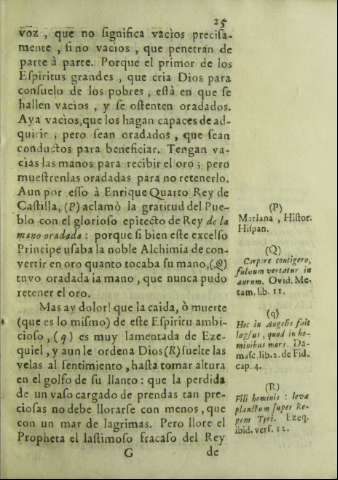 25
voz , que no significa vacios precisa-
mente , si no vacios , que penetran de
parte à parte. Porque el primor de los
Espiritus grandes , que cria Dios para
consuelo de los pobres , està en que se
hallen vacios , y se ostenten oradados.
Aya vacios, que los hagan capaces de ad-
quirir ; pero sean oradados , que sean
conductos para beneficiar. Tengan va-
cias las manos para recibir el oro ; pero
muestrenlas oradadas para no retenerlo.
Aun por esso à Enrique Quarto Rey de
Castilla, (P) aclamò la gratitud del Pue-
blo con el glorioso epitecto de Rey de la
mano oradada : porque si bien este excelso
Principe usaba la noble Alchimia de con-
vertir en oro quanto tocaba su mano, (Q)
tuvo oradada la mano , que nunca pudo
retener el oro.
Mas ay dolor! que la caida, ò muerte
(que es lo mismo) de este Espiritu ambi-
cioso , (q) es muy lamentada de Eze-
quiel , y aun le ordena Dios (R) suelte las
velas al sentimiento , hasta tomar altura
en el golfo de su llanto: que la perdida
de un vaso cargado de prendas tan pre-
ciosas no debe llorarse con menos , que
con un mar de lagrimas. Pero llore el
Propheta el lastimoso fracaso del Rey
G de
(P)
Mariana , Histor.
Hispan.
(Q)
Corpore contigero,
fulvum vertatur in
aurum. Ovid. Me-
tam. lib. 11.
(q)
Hoc in Angelis fuit
lapsus, quod in ho-
minibus mors. Da-
masc. lib. 2. de Fid.
cap. 4.
(R)
Fili hominis : leva
planctum super Re-
gem Tyri. Ezeq.
ibid. vers. 12.